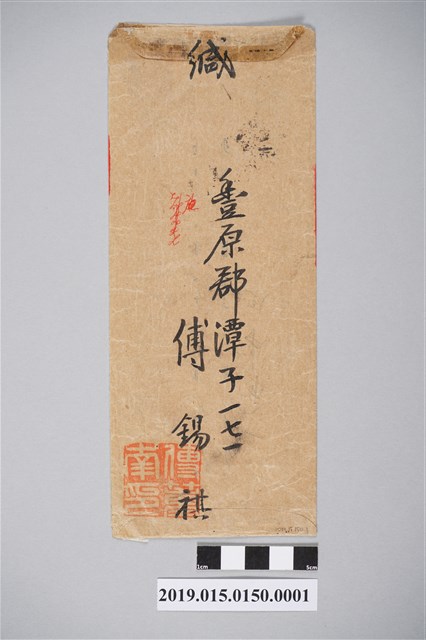 緘
豊原郡潭子一七一
傅錫祺
1cm
5cm
2019.015.0150.0001